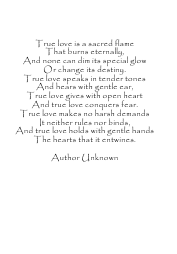 True love is a sacred flame
That burns eternally,
And none can dim its special glow
Or change its destiny.
True love speaks in tender tones
And hears with gentle ear,
True love gives with open heart
And true love conquers fear.
True love makes no harsh demands
It neither rules nor binds,
And true love holds with gentle hands
The hearts that it entwines.
Author Unknown